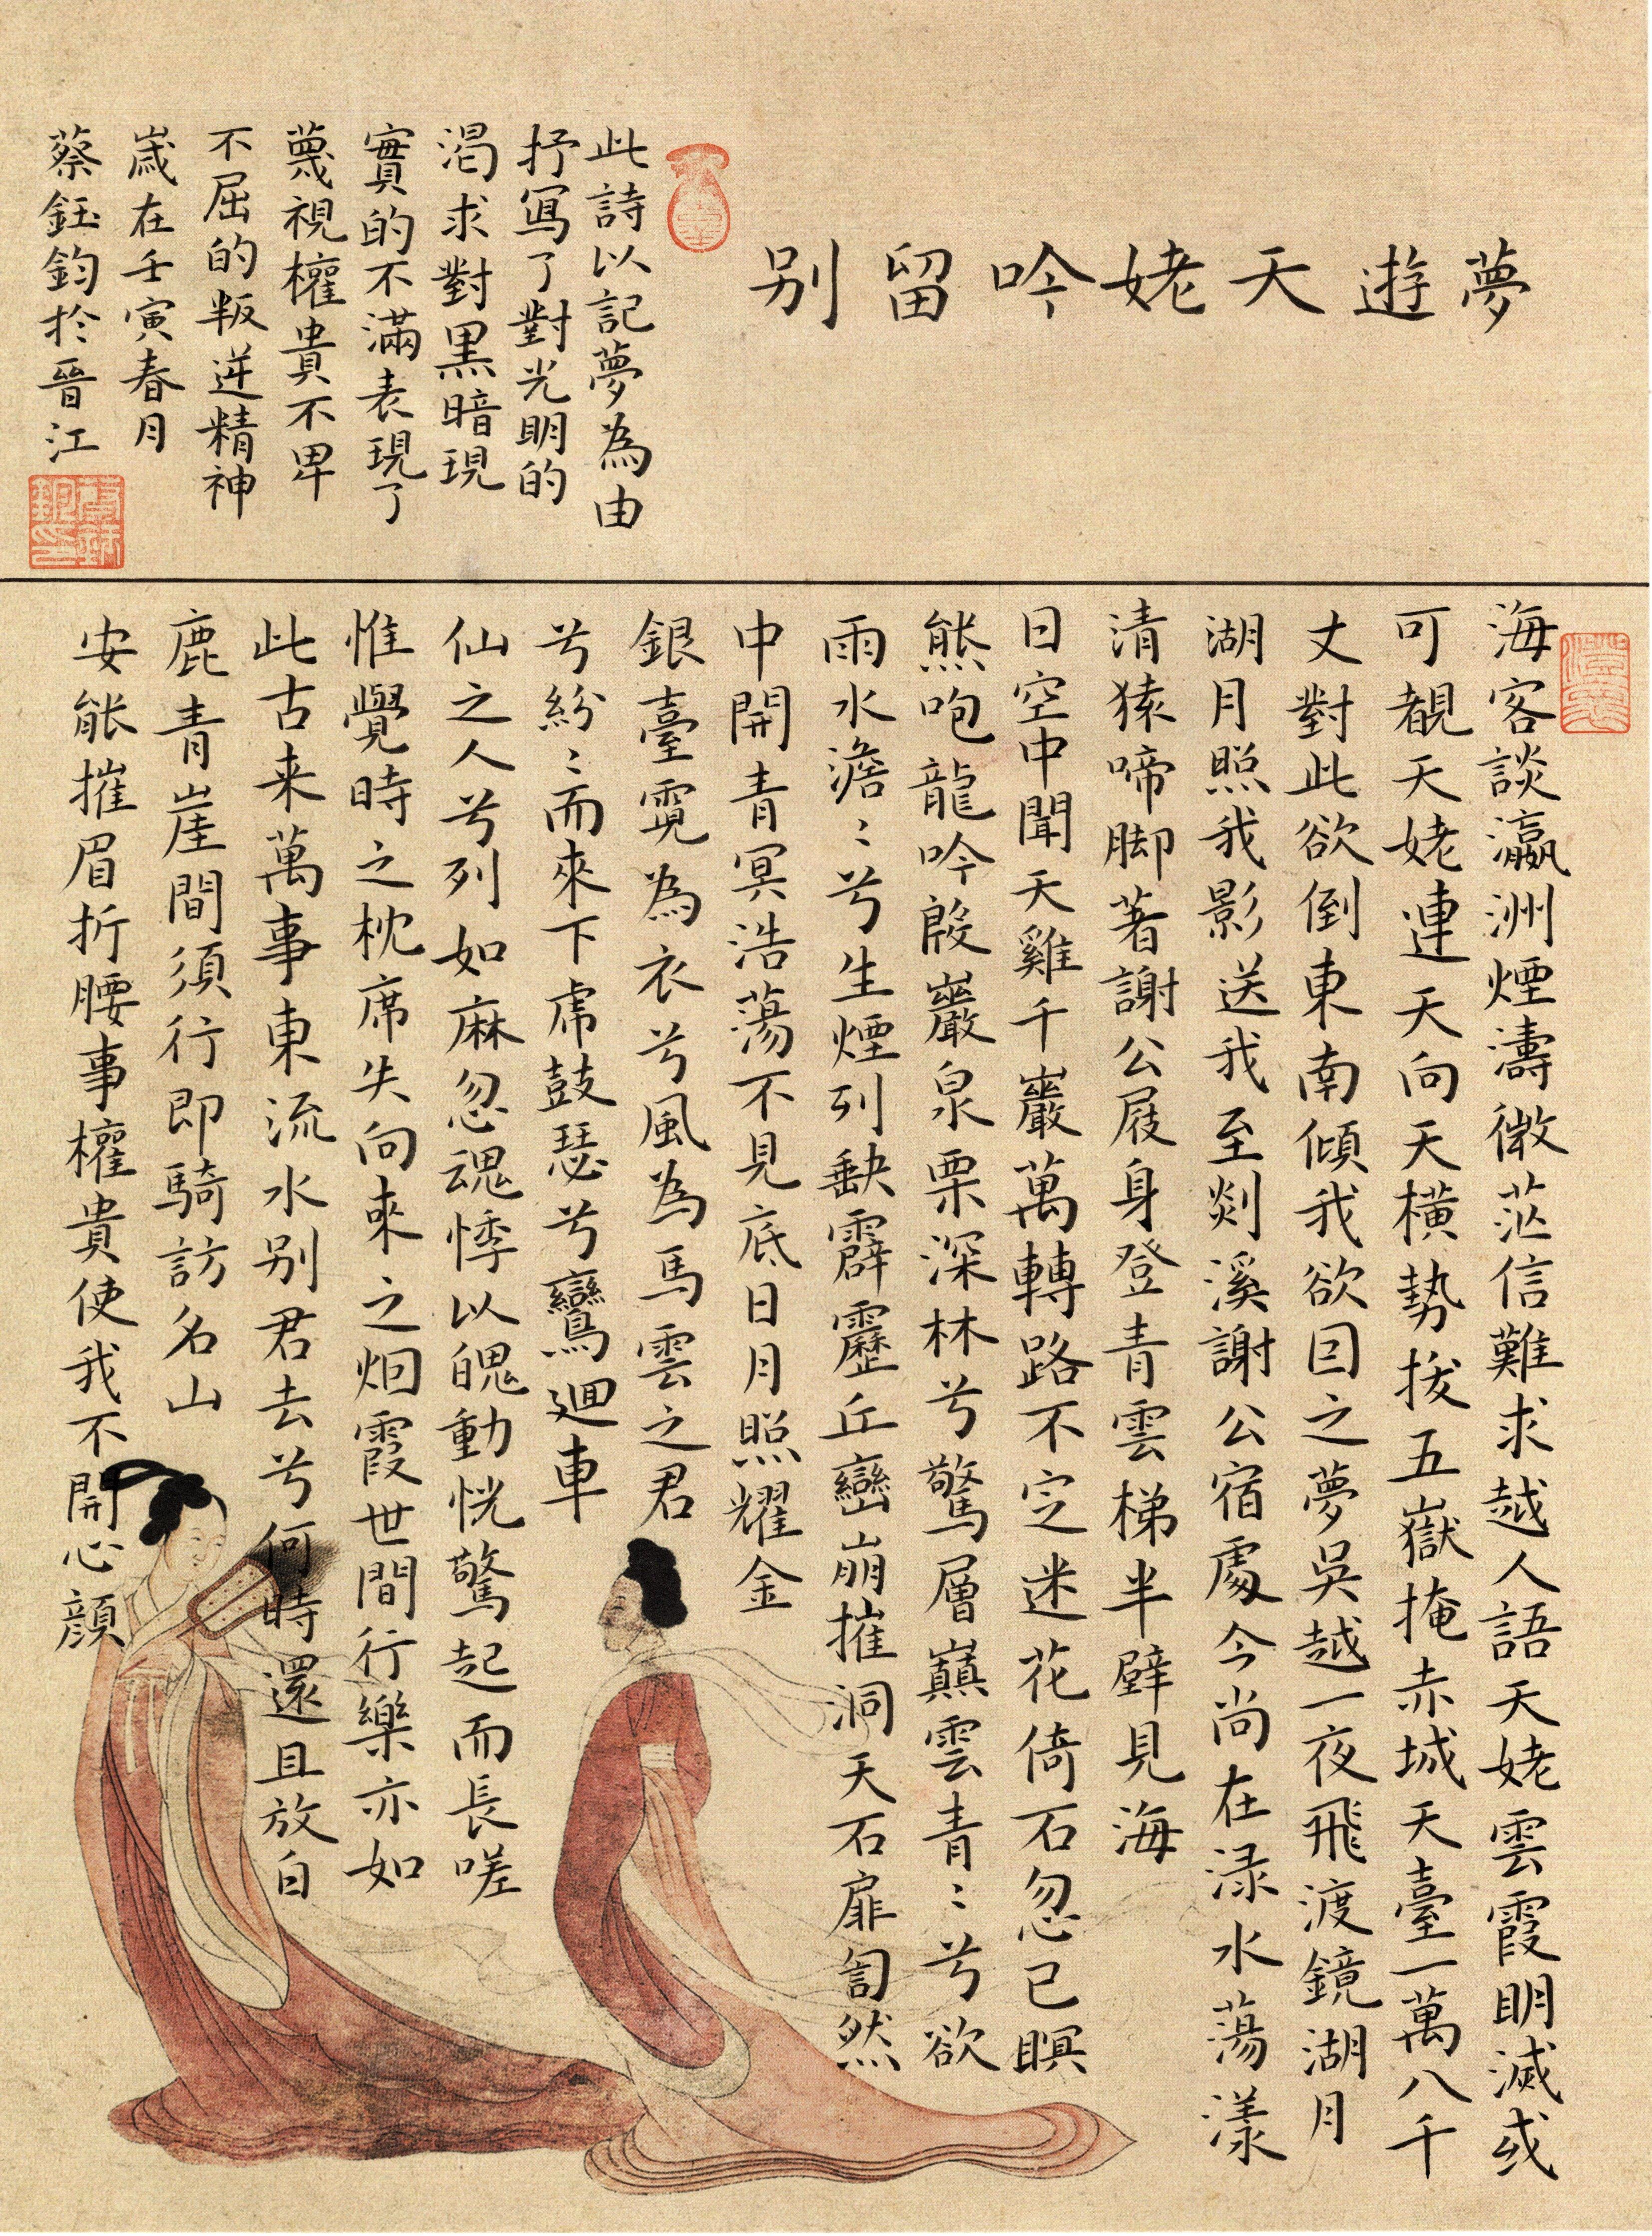 夢遊天姥吟留别
此詩以記夢為由
抒寫了對光明的
渴求對黑暗現
實的不滿表現了
蔑視權貴不卑
不屈的叛逆精神
嵗在壬寅春月
蔡鈺鈞於晉江
海客談瀛洲煙濤微茫信難求越人語天姥雲霞明滅或
可覩天姥連天向天橫勢拔五嶽掩赤城天臺一萬八千
丈對此欲倒東南傾我欲因之夢吳越一夜飛渡鏡湖月
湖月照我影送我至剡溪謝公宿處今尚在渌水蕩漾
清猿啼脚著謝公屐身登青雲梯半壁見海
日空中聞天雞千巖萬轉路不定迷花倚石忽已暝
熊咆龍吟殷巖泉栗深林兮驚層巔雲青〻兮欲
雨水澹〻兮生煙列缺霹靂丘巒崩摧洞天石扉訇然
中開青冥浩蕩不見底日月照耀金
銀臺霓為衣兮風為馬雲之君
兮紛〻而來下虎鼓瑟兮鸞廻車
仙之人兮列如麻忽魂悸以魄動恍驚起而長嗟
惟覺時之枕席失向來之烟霞世間行樂亦如
此古来萬事東流水别君去兮何時還且放白
鹿青崖間須行即騎訪名山
安能摧眉折腰事權貴使我不開心顔